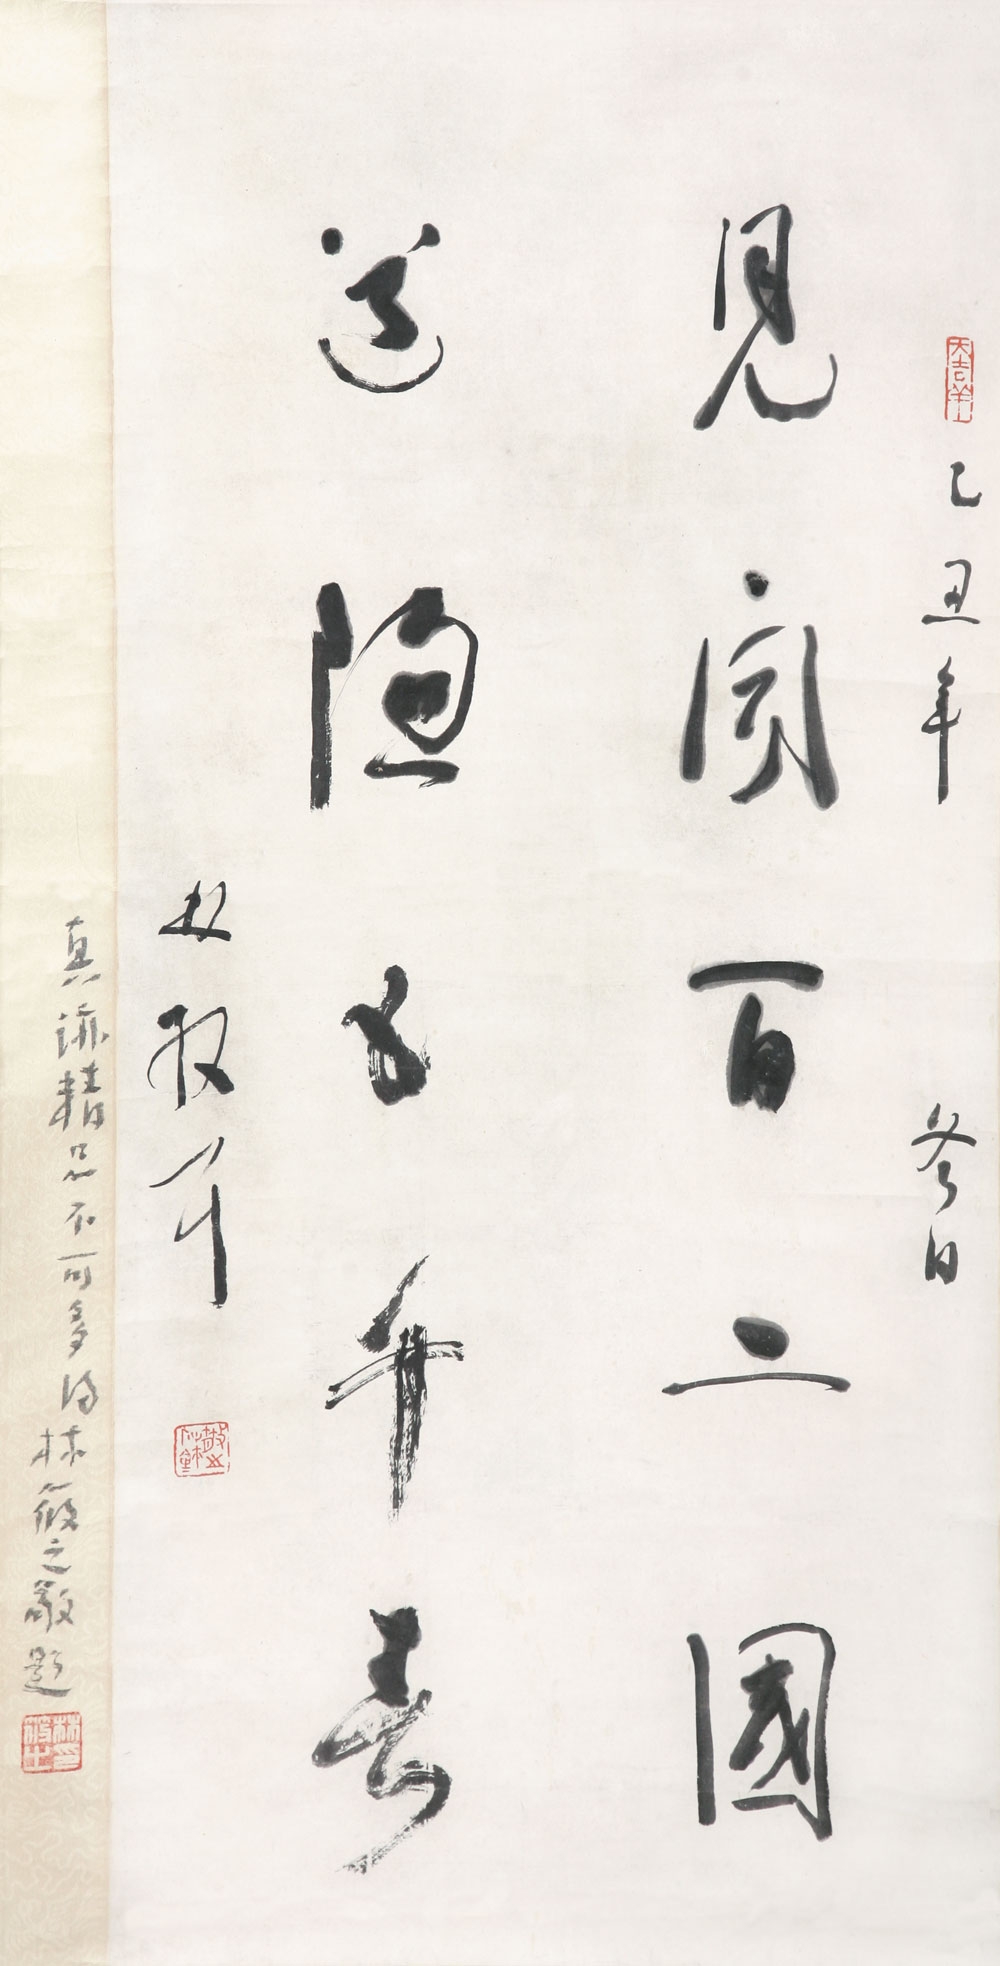 乙丑年 冬日
見聞百二國
道隱五千
林散耳
真跡精品不可多得林筱之敬題